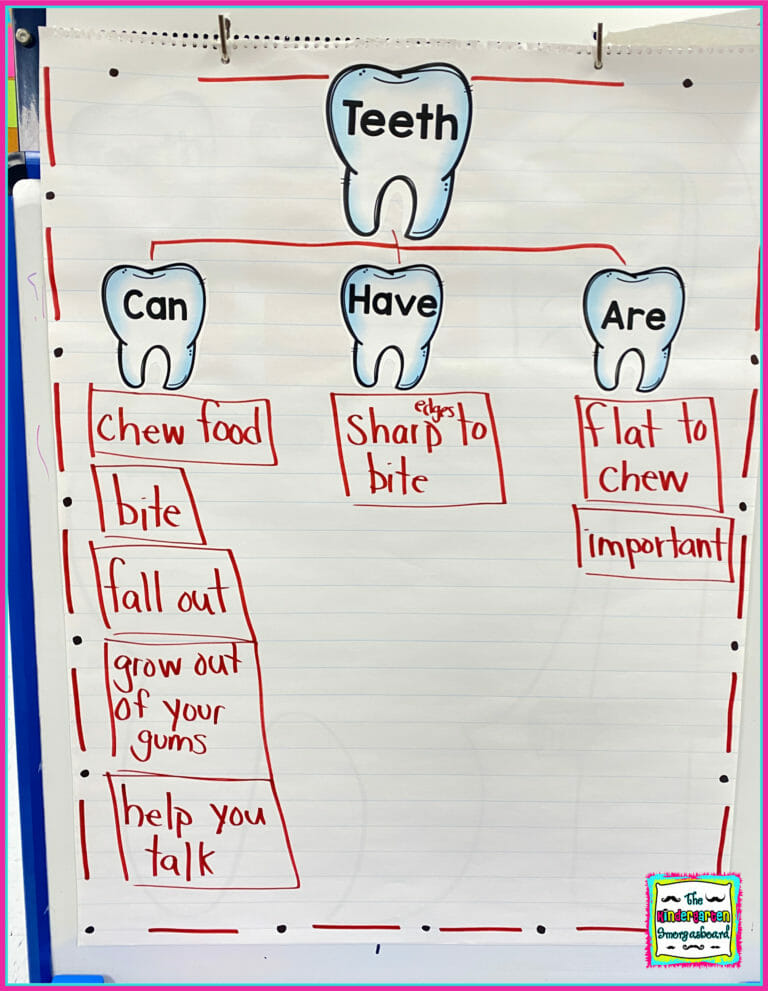 Teeth
Can
Have
Are
chew food
bite
fall out
grow out
of your
gums
help you
talk
edges
sharp to
bite
flat to
chew
important
The
Kindergarten
Smorgasboard